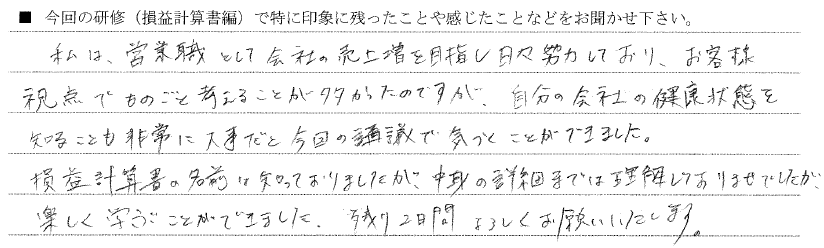 ■ 今回の研修（損益計算書編）で特に印象に残ったことや感じたことなどをお聞かせ下さい。
私は、営業職として会社の売上増を目指し日々努力しており、お客様
視点でものごと考えることが多かったのですが、自分の会社の健康状態を
知ることも非常に大事だと今回の講議で気づくことができました。
損益計算書の名前は知っておりましたが、中身の詳細までは理解しておりませでしたが、
楽しく学ぶことができました。残り2日間よろしくお願いいたします。